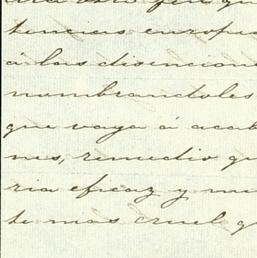 tencias europe
á las disencione
nombrandoles
que vaya á acab
nes, remedio qu
ria eficaz y me
te mas cruel q